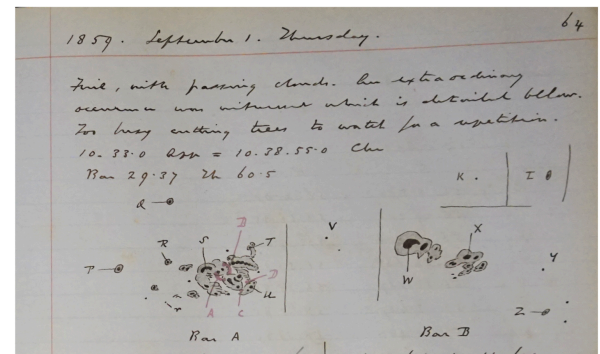 64
1859. September 1. Thursday.
Fine, with passing clouds. An extraordinary
occurrence was witnessed which is detailed below.
Too busy cutting trees to watch for a repetition.
10.33.0 = 10.38.55.0
Bar 29.37 Th 60.5
K. I
Q
V
D
R S T X
P D Y
W
A C U Z
Bar A Bar B